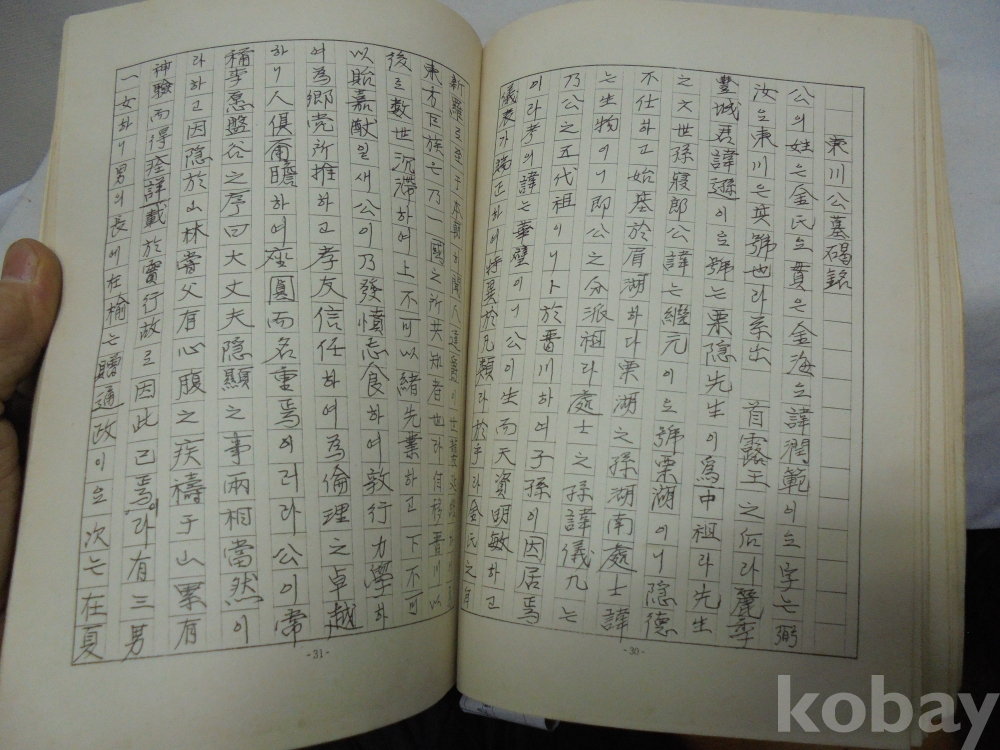 東川公墓碣銘
公의 姓은 金氏요 貫은 金海요 諱潤範이요 字는 弼
汝요 東川은 其號也라 系出 首露王之后라 麗季
豊城君諱遜이요 號는 栗隱先生이 爲中祖라 先生
之六世孫寢郎公諱는 繼元이요 號栗湖이니 隱德
不仕하고 始基於眉湖하다 栗湖之孫湖南處士諱
는 生物이니 即公之分派祖라 處士之孫諱儀九는
乃公之五代祖이니 卜於晋川하여 子孫이 因居焉
이라 考의 諱는 華璧이니 公이 生而天資明敏하고
儀表가 端正하여 特異於凡類라 於乎라 金氏之
東方巨族은 乃一國之所共知者也라 自移晋川以
後로 數世沉滯하여 上不可以緖先業하고 下不可
以貽嘉猷일새 公이 乃發憤忘食하여 敦行力學하
여 爲鄕党所推하고 孝友信任하여 爲倫理之卓越
하니 人俱甭瞻하여 座圓而名重焉이러라 公이 常
稱李愿盤谷之序曰大丈夫隱顯之事兩相當然이
라하고 因隱於山林嘗父有心腹之疾禱于山累有
神驗而得痊詳載於實行故로 因此已焉이라 有三男
一女하니 男의 長에 在楡는 贈通政이요 次는 在夏
-31-
-30-
kobay